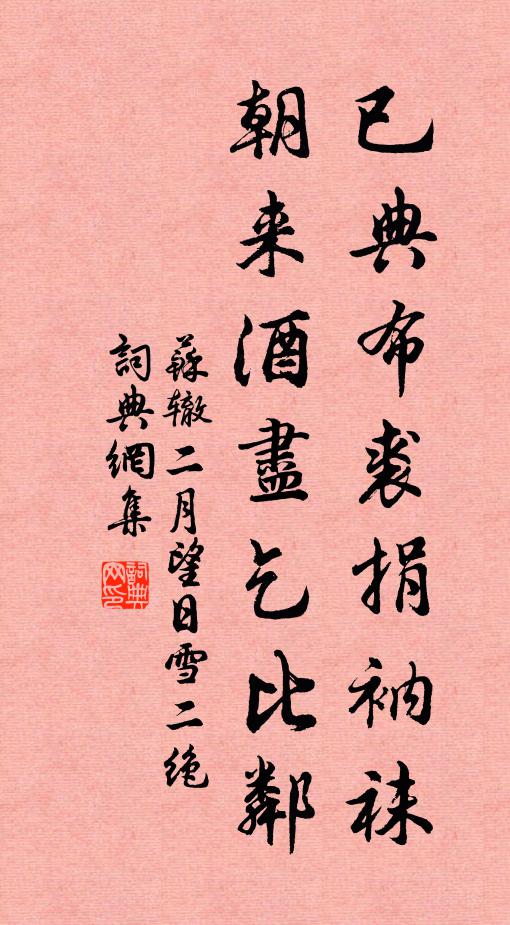 已典布裘捐衲袜
朝来酒盡乞比鄰
蘇辙二月望日雪二绝
詞典網集
詞典网印